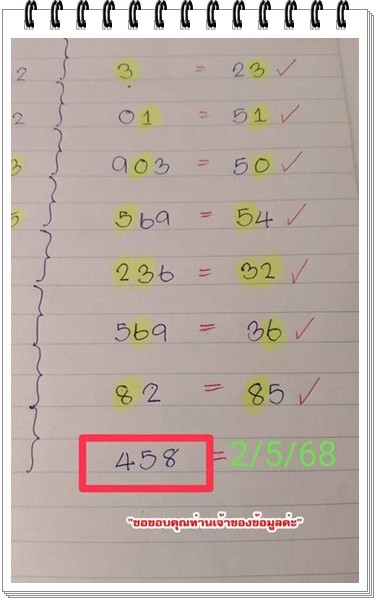 2 3 = 23 ✓
2 01 = 51 ✓
3 903 = 50 ✓
5 569 = 54 ✓
236 = 32 ✓
569 = 36 ✓
82 = 85 ✓
458 = 2/5/68
"ขอขอบคุณท่านเจ้าของข้อมูลค่ะ"